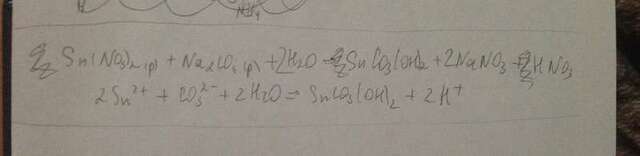 2 Sn(NO3)2(p) + Na2CO3(p) + 2H2O → SnCO3(OH)2 + 2NaNO3 + 2HNO3
2Sn²⁺ + CO3²⁻ + 2H2O = SnCO3(OH)2 + 2H⁺